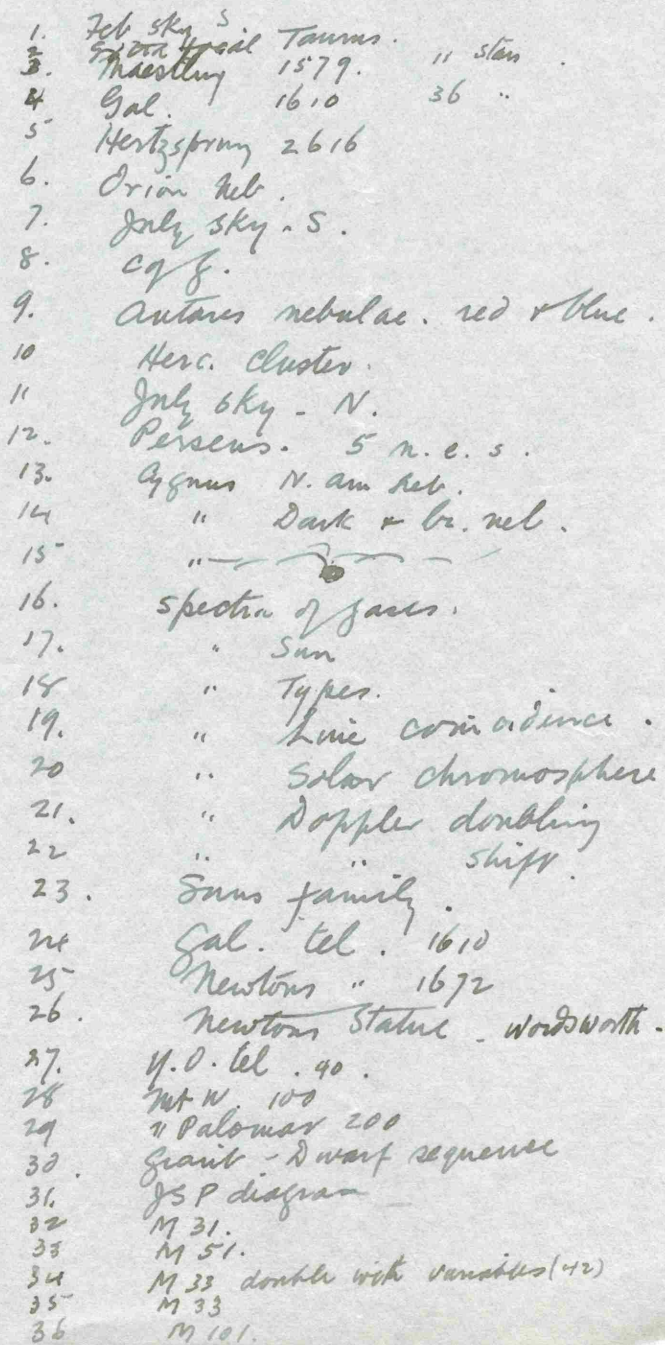 1. Feb sky S
2 Extra focal Taurus.
3. Maestlin 1579. 11 stars.
4 Gal. 1610 36 "
5 Hertzsprung 2616
6. Orion Neb.
7. July sky - S.
8. C of G.
9. Antares nebulae. red + blue.
10 Herc. Cluster.
11 July sky - N.
12. Perseus. 5 n. e. s.
13. Cygnus N. am Neb.
14 " Dark + br. nel.
15 "
16. Spectra of gases.
17. " Sun
18 " Types.
19. " Line coincidence.
20 " Solar chromosphere
21. " Doppler doubling
22 " " shift.
23. Suns family.
24 Gal. tel. 1610
25 Newtons " 1672
26. Newtons Statue - Wordsworth.
27. Y.O. tel. 40.
28 Mt W. 100
29 " Palomar 200
30. Giant - Dwarf sequence
31. JSP diagram
32 M 31.
33 M 51.
34 M 33 double with variables (42)
35 M 33
36 M 101.